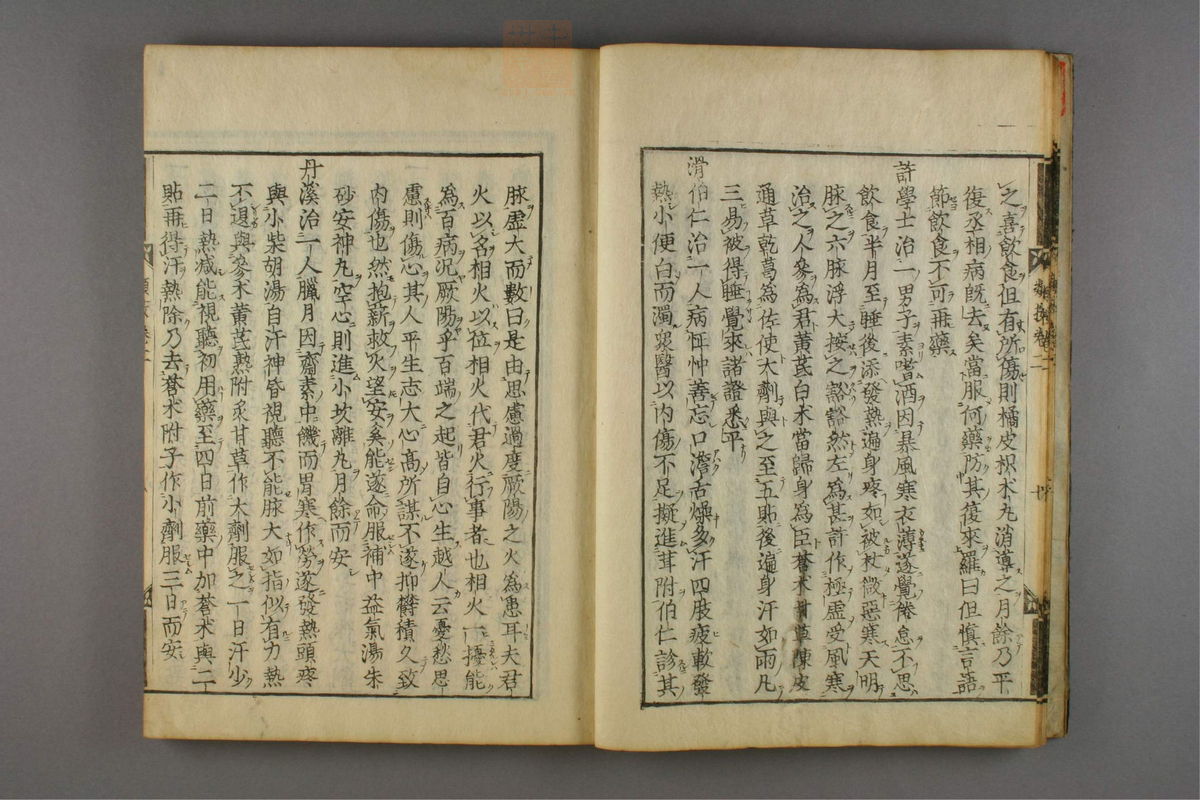 之喜飲食但有所傷則橘皮枳朮丸消導之月餘乃平
復丞相病既去矣當服何藥防其復來羅曰但慎言語
節飲食不可再藥
許學士治一男子素嗜酒因暴風寒衣薄遂覺倦怠不思
飲食半月至睡後添發熱遍身疼如被杖微惡寒天明
脉之六脉浮大按之豁豁然左為甚許作極虛受風寒
治之人參為君黃芪白朮當歸身為臣蒼朮甘草陳皮
通草乾葛為佐使大劑與之至五貼後遍身汗如雨凡
三易被得睡覺來諸證悉平
滑伯仁治一人病怔忡善忘口澹舌燥多汗四肢疲軟發
熱小便白而濁衆醫以内傷不足擬進茸附伯仁診其
脉虛大而數曰是由思慮過度厥陽之火為患耳夫君
火以名相火以位相火代君火行事者也相火一擾能
為百病况厥陽乎百端之起皆自心生越人云憂愁思
慮則傷心其人平生志大心高所謀不遂抑欝積久致
内傷也然抱薪救火望安奚能遂命服補中益氣湯朱
砂安神丸空心則進小坎離丸月餘而安
丹溪治一人臘月因齋素中饑而胃寒作勞遂發熱頭疼
與小柴胡湯自汗神昏視聽不能脉大如指似有力熱
不退與參朮黃芪熟附炙甘草作大劑服之一日汗少
二日熱减能視聽初用藥至四日前藥中加蒼朮與二
貼再得汗熱除乃去蒼朮附子作小劑服三日而安